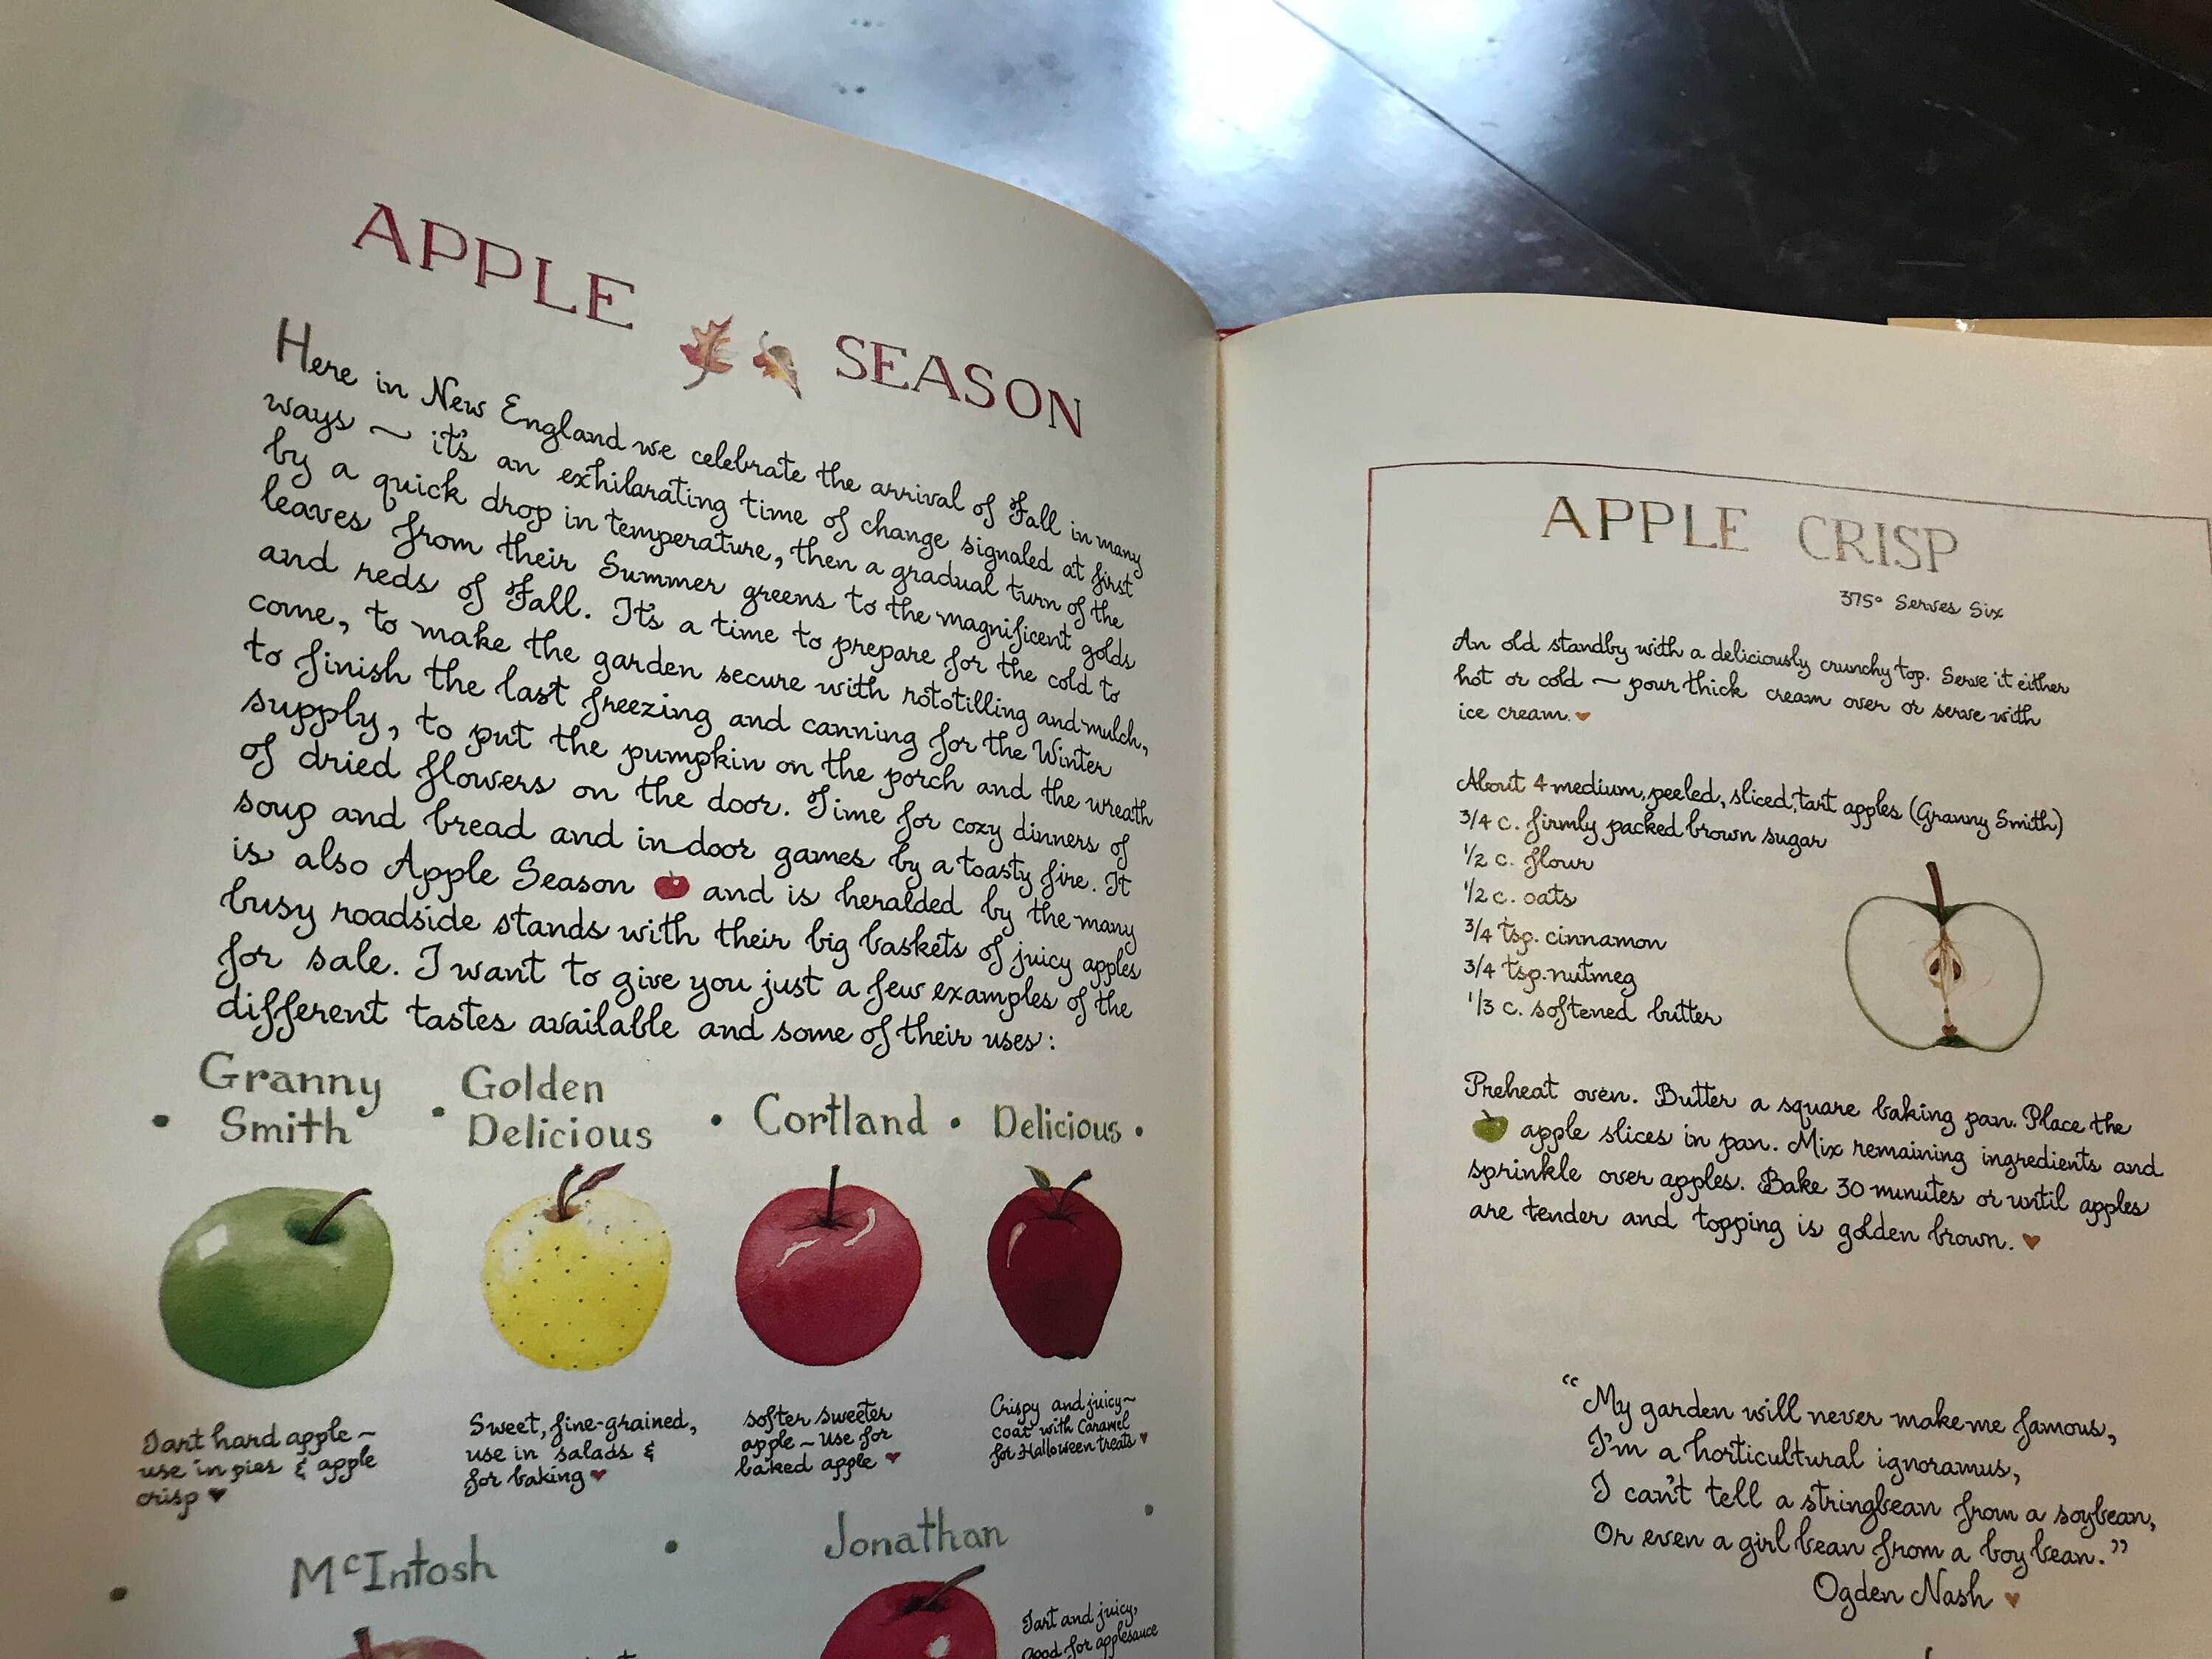 APPLE SEASON
Here in New England we celebrate the arrival of Fall in many
ways ~ it's an exhilarating time of change signaled at first
by a quick drop in temperature, then a gradual turn of the
leaves from their Summer greens to the magnificent golds
and reds of Fall. It's a time to prepare for the cold to
come, to make the garden secure with rototilling and mulch,
to finish the last freezing and canning for the Winter
supply, to put the pumpkin on the porch and the wreath
of dried flowers on the door. Time for cozy dinners of
soup and bread and indoor games by a toasty fire. It
is also Apple Season and is heralded by the many
busy roadside stands with their big baskets of juicy apples
for sale. I want to give you just a few examples of the
different tastes available and some of their uses:
• Granny Smith
Tart hard apple ~
use in pies & apple
crisp ♥
• Golden Delicious
Sweet, fine-grained,
use in salads &
for baking ♥
• Cortland
softer sweeter
apple ~ use for
baked apple ♥
• Delicious •
Crispy and juicy ~
coat with Caramel
for Halloween treats ♥
• McIntosh
• Jonathan •
Tart and juicy,
Good for applesauce
APPLE CRISP
375° Serves Six
An old standby with a deliciously crunchy top. Serve it either
hot or cold ~ pour thick cream over or serve with
ice cream. ♥
About 4 medium, peeled, sliced, tart apples (Granny Smith)
3/4 c. firmly packed brown sugar
1/2 c. flour
1/2 c. oats
3/4 tsp. cinnamon
3/4 tsp. nutmeg
1/3 c. softened butter
Preheat oven. Butter a square baking pan. Place the
apple slices in pan. Mix remaining ingredients and
sprinkle over apples. Bake 30 minutes or until apples
are tender and topping is golden brown. ♥
"My garden will never make me famous,
I'm a horticultural ignoramus,
I can't tell a stringbean from a soybean,
Or even a girl bean from a boy bean."
Ogden Nash ♥